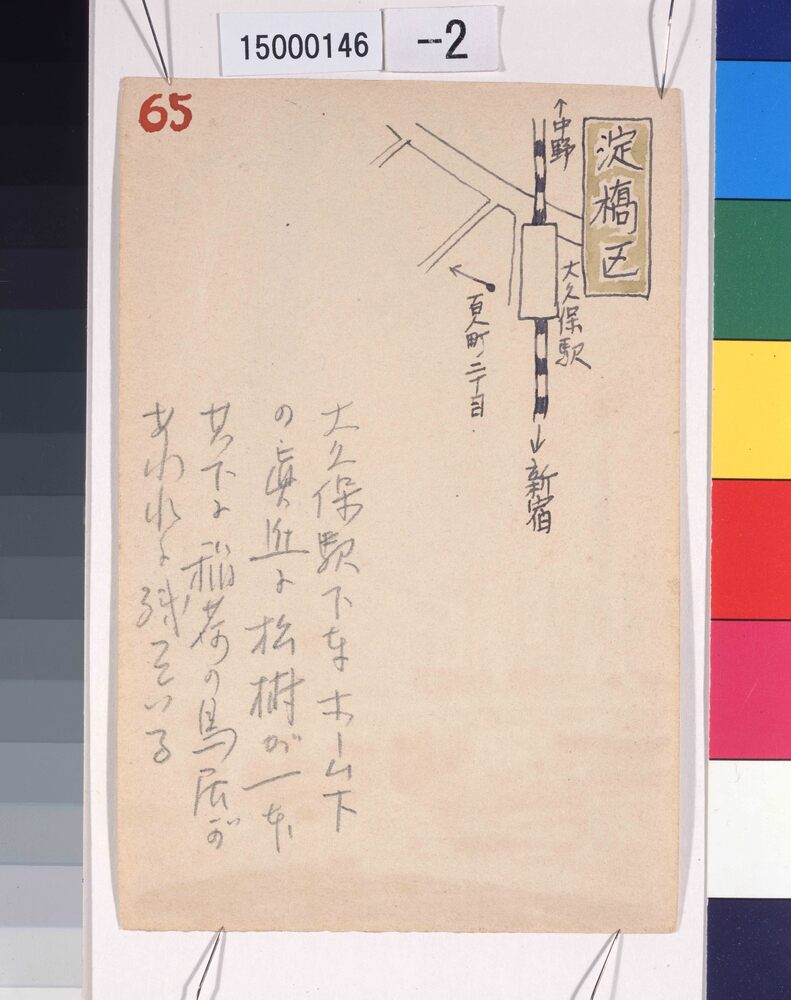 15000146 -2
65
淀橋区
↑中野
大久保駅
百人町二丁目
↓新宿
大久保駅下車ホーム下
の真近に松樹が一本
其下に稲荷の鳥居が
あわれに残っている